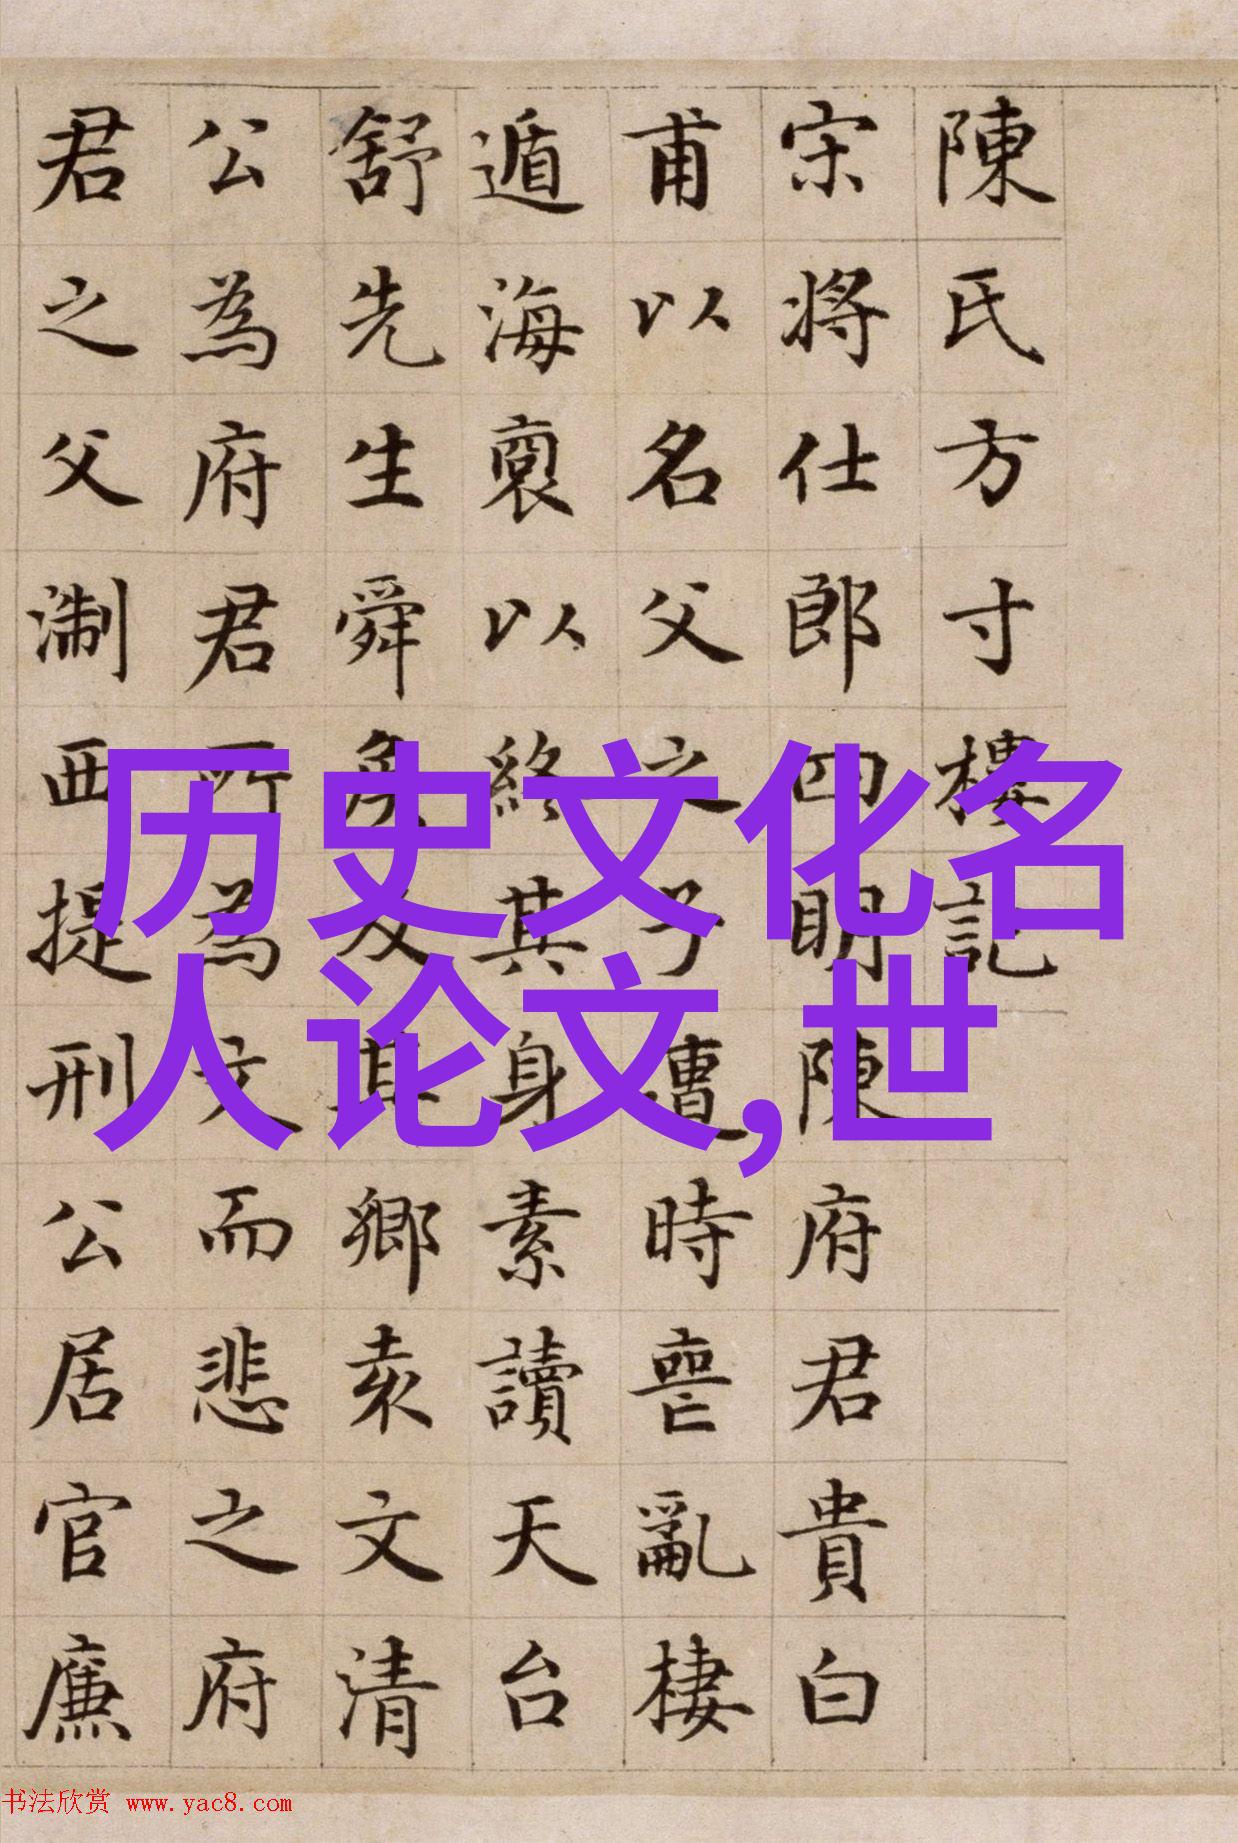 陳氏方寸樓記
宋將仕郎四明陳府君貴白
甫以名父之子遭時喪亂棲
遁海裒以終其身素讀天台
舒先生舜侯及其鄉袁文清
公為府君所為文而悲之府
君之父淛西提刑公居官廉
历史文化名
人论文,世
书法欣赏 www.yac8.com